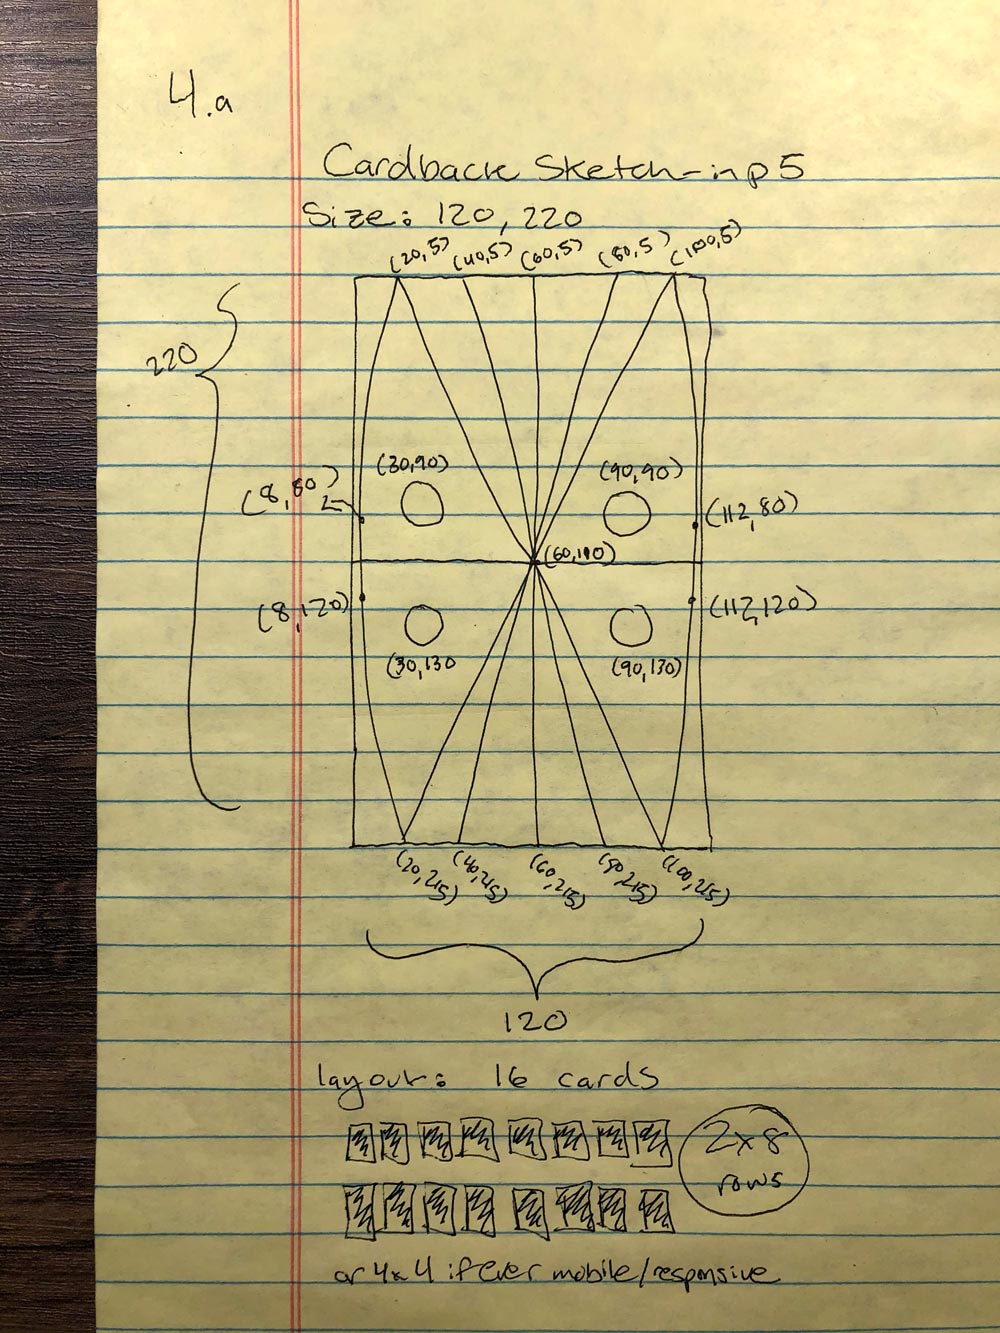 4.a
Cardback Sketch-in p5
Size: 120, 220
(20,5) (40,5) (60,5) (80,5) (100,5)
220
(30,90) (90,90)
(8,80) (112,80)
(60,110)
(8,120) (112,120)
(30,130 (90,130)
(20,215) (40,215) (60,215) (80,215) (100,215)
120
layout: 16 cards
2x8
rows
or 4x4 if ever mobile/responsive